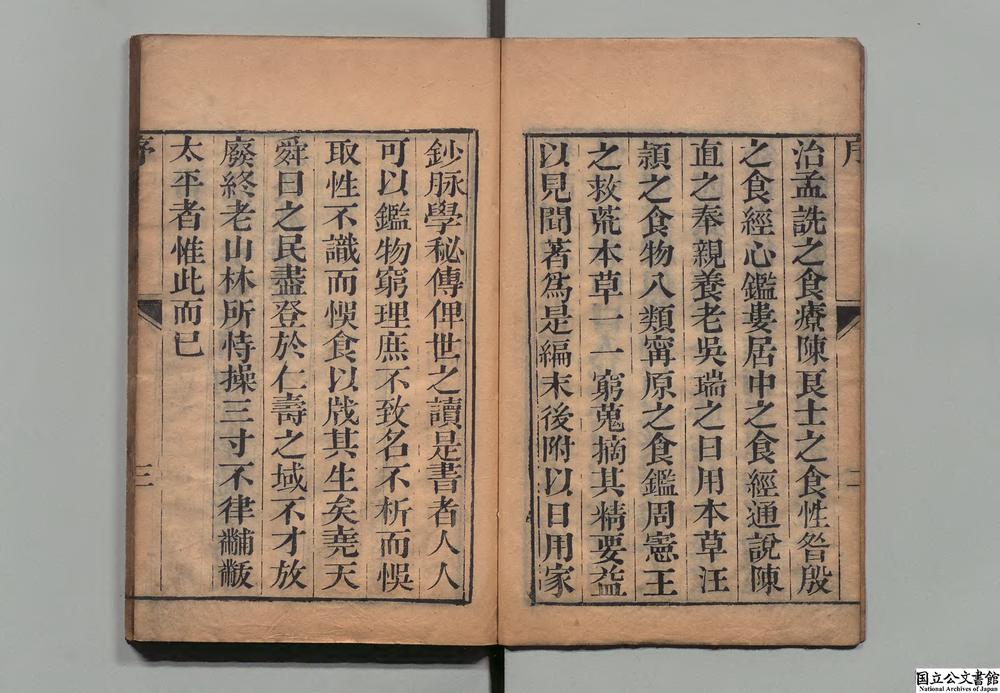 序
治孟詵之食療陳良士之食性昝殷
之食經心鑑婁居中之食經通說陳
直之奉親養老吳瑞之日用本草汪
頴之食物八類甯原之食鑑周憲王
之救荒本草一一窮蒐摘其精要益
以見聞著爲是編末後附以日用家
二
鈔脉學秘傳俾世之讀是書者人人
可以鑑物窮理庶不致名不析而悞
取性不識而悞食以戕其生矣堯天
舜日之民盡登於仁壽之域不才放
廢終老山林所恃操三寸不律黼黻
太平者惟此而已
序
三
国立公文書館
National Archives of Japan